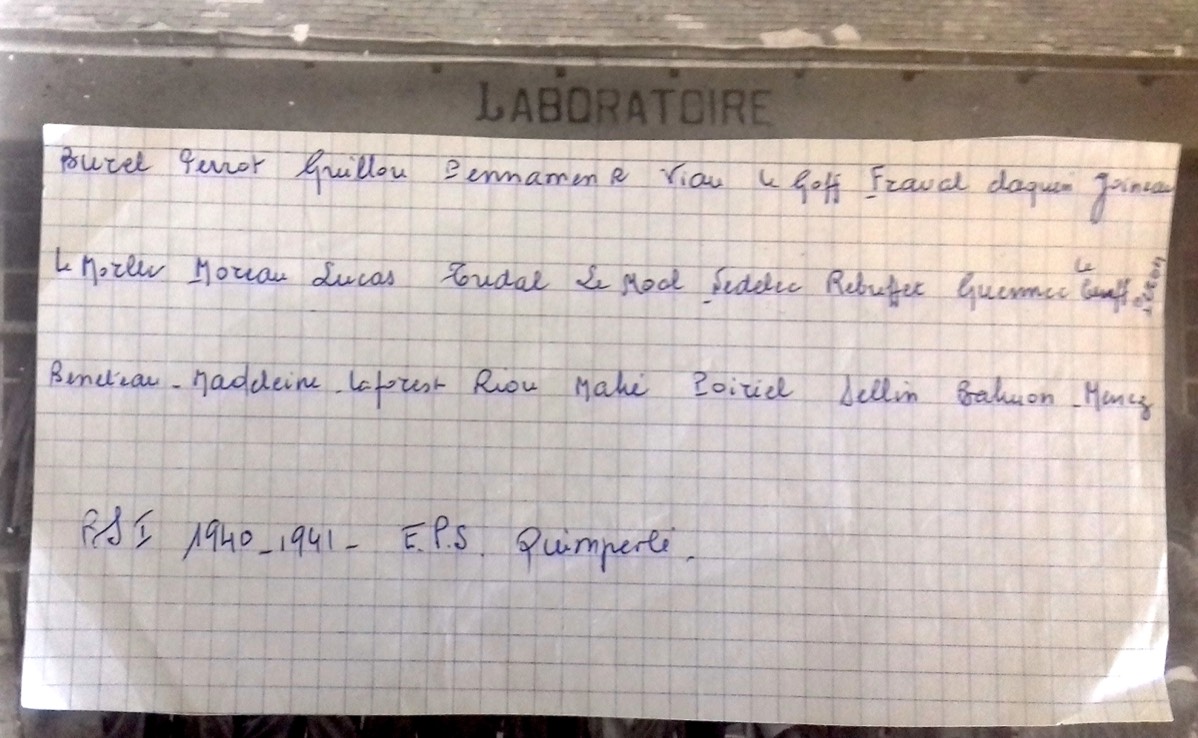 LABORATOIRE
Burel Perrot Guillou Pennamen R Viau Le Goff Fraval daquin Joineau
Le Morlec Moreau Lucas Tudal Le Moal Sedelec Rebuffet Guennec Le
Beneteau - Madeleine Laforest Riou Mahé Poiriel Sellin Bahuon Menez
PS I 1940-1941 - E.P.S. Quimperlé.